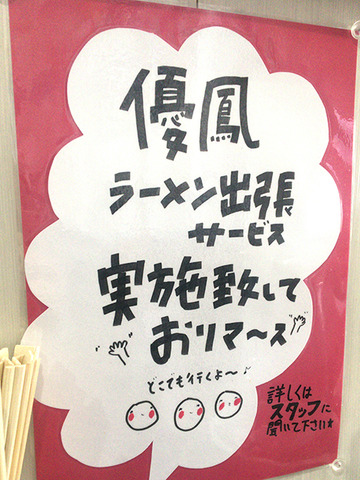 優鳳
ラーメン出張
サービス
実施致して
おリマ〜ス
どこでも行くよ〜♪
詳しくは
スタッフに
聞いて下さい★